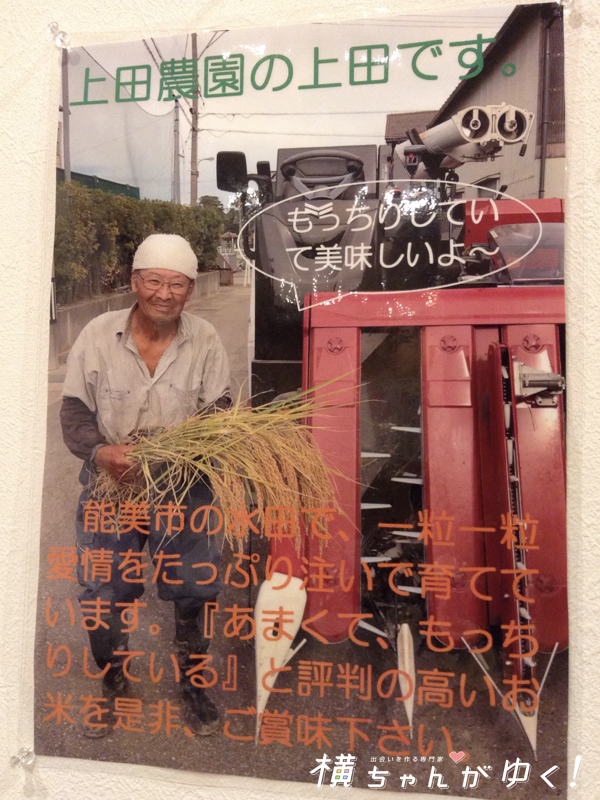 上田農園の上田です。
もっちりしてい
て美味しいよ〜
能美市の水田で、一粒一粒
愛情をたっぷり注いで育てて
います。『あまくて、もっち
りしている』と評判の高いお
米を是非、ご賞味下さい。
出会いを作る専門家
横ちゃんがゆく!